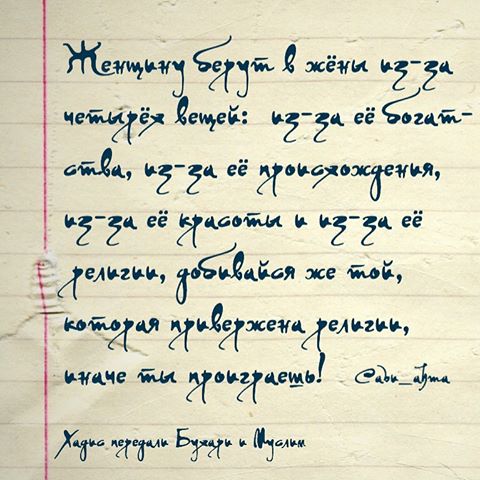 Женщину берут в жёны из-за
четырёх вещей: из-за её богат-
ства, из-за её происхождения,
из-за её красоты и из-за её
религии, добивайся же той,
которая привержена религии,
иначе ты проиграешь!
Хадис передали Бухари и Муслим